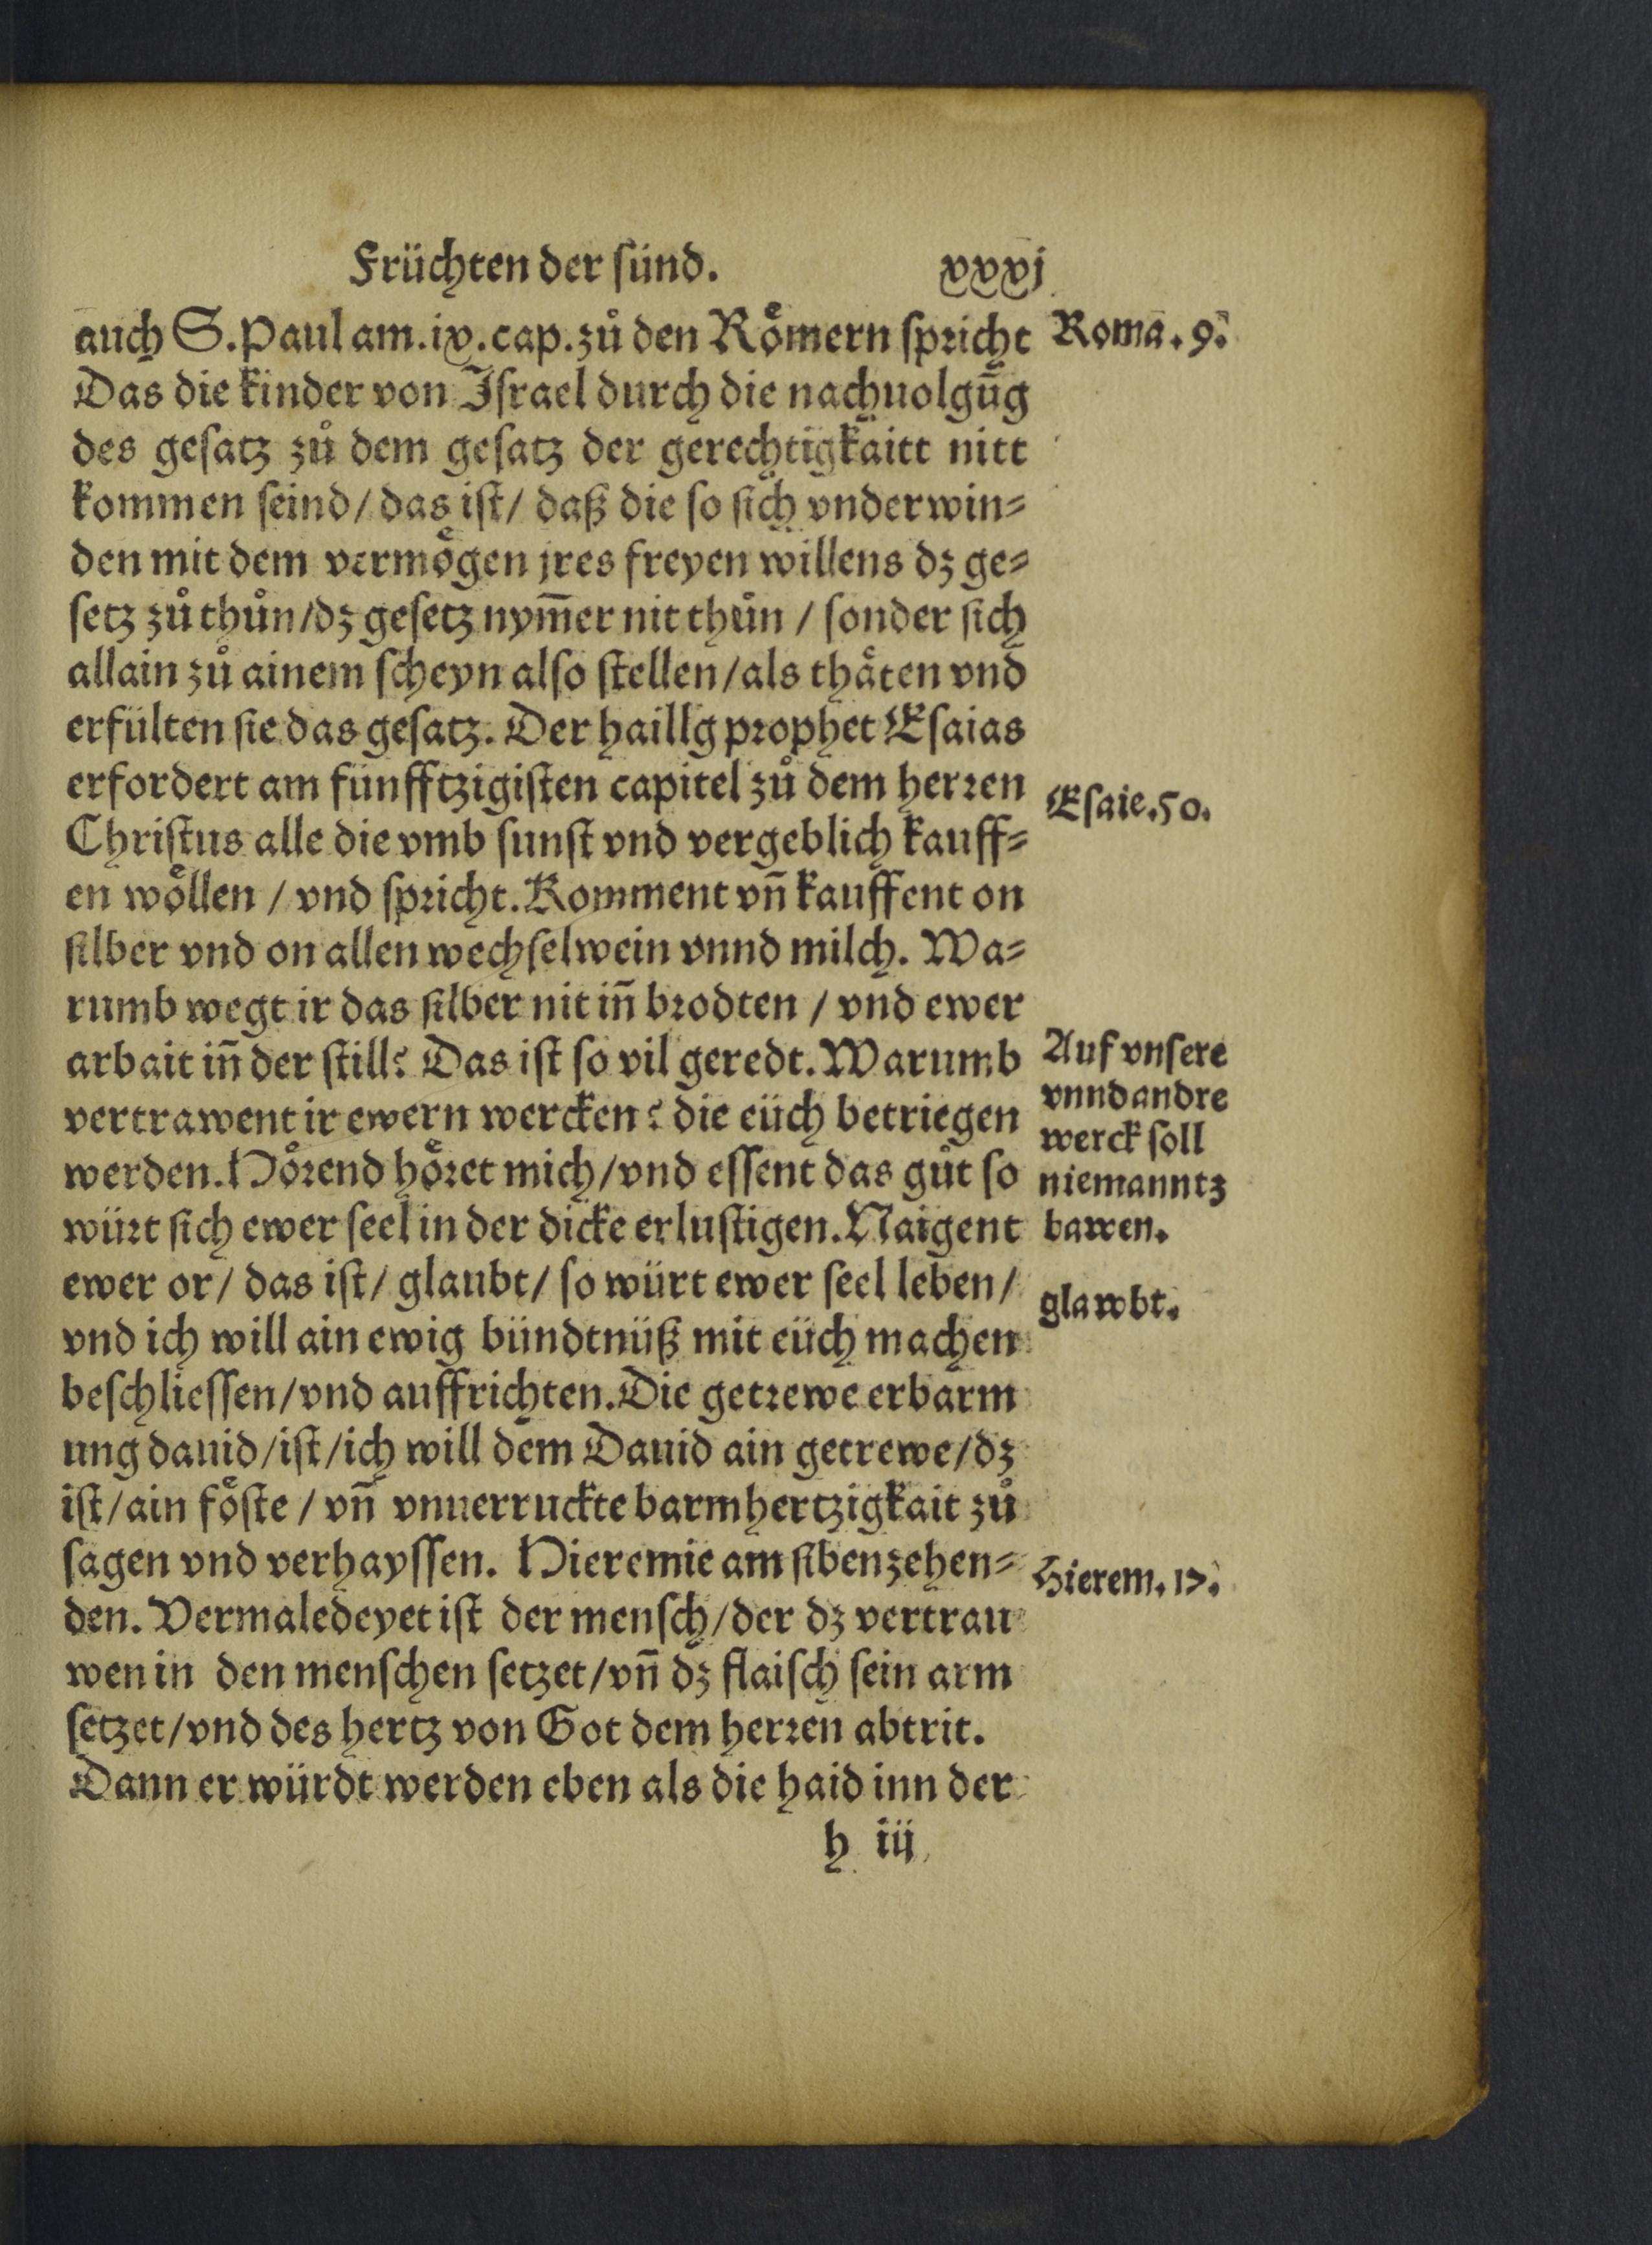 Früchten der sünd. xxxj
auch S. Paul am.ix.cap.zů den Roͤmern spricht
Roma. 9.
Das die kinder von Israel durch die nachuolgūg
des gesatz zů dem gesatz der gerechtigkaitt nitt
kommen seind/ das ist/ daß die so sich vnderwin⸗
den mit dem vermoͤgen jres freyen willens dz ge⸗
setz zů thůn/dz gesetz nym̄er nit thůn / sonder sich
allain zů ainem scheyn also stellen/als thaͤten vnd
erfülten sie das gesatz. Der haillg prophet Esaias
erfordert am fünfftzigisten capitel zů dem herren
Esaie.50.
Christus alle die vmb sunst vnd vergeblich kauff⸗
en woͤllen / vnd spricht. Komment vn̄ kauffent on
silber vnd on allen wechselwein vnnd milch. Wa⸗
rumb wegt ir das silber nit in̄ brodten / vnd ewer
arbait in̄ der still? Das ist so vil geredt. Warumb
vertrawent ir ewern wercken? die eüch betriegen
werden. Hoͤrend hoͤret mich/vnd essent das gůt so
würt sich ewer seel in der dicke erlustigen. Naigent
Auf vnsere
vnnd andre
werck soll
niemanntz
bawen.
ewer or/ das ist/ glaubt/ so würt ewer seel leben/
glawbt.
vnd ich will ain ewig bündtnüß mit eüch machen
beschliessen/vnd auffrichten. Die getrewe erbarm
ung dauid/ist/ich will dem Dauid ain getrewe/dz
ist/ain foͤste / vn̄ vnuerruckte barmhertzigkait zů
sagen vnd verhayssen. Hieremie am sibenzehen⸗
Hierem. 17.
den. Vermaledeyet ist der mensch/der dz vertrau⸗
wen in den menschen setzet/vn̄ dz flaisch sein arm
setzet/vnd des hertz von Got dem herren abtrit.
Dann er würdt werden eben als die haid inn der
h iij